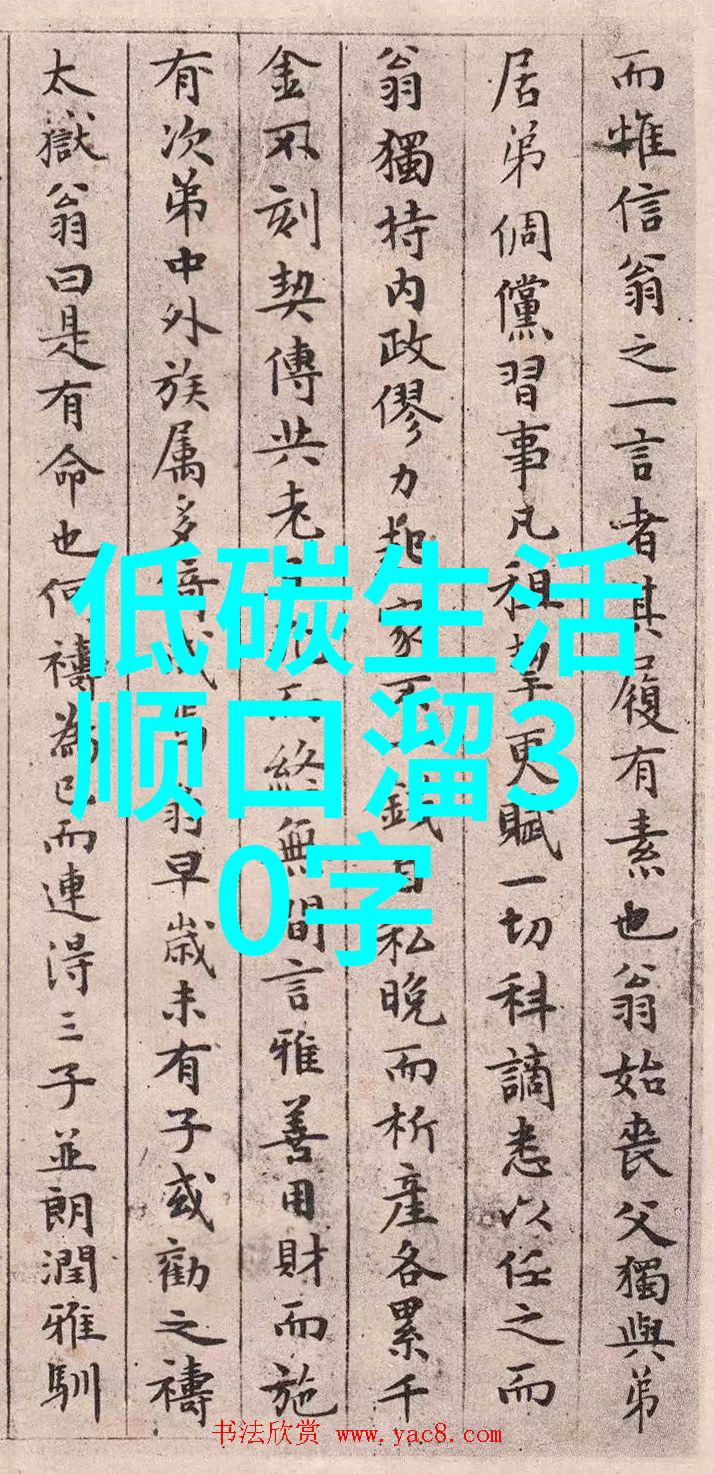 而惟信翁之一言者其履有素也翁始丧父獨與弟
居弟倜儻習事凡租挈更賦一切科謫悉以任之而
翁獨持内政僇力起家不一錢自私晚而析產各累千
金不刻契傳共老而終無間言雅善用財而施
有次弟中外族属多倚翁早歲未有子或勸之禱
太嶽翁曰是有命也何禱為已而連得三子並朗潤雅馴
低碳生活
顺口溜3
0字
书法欣赏 www.yac8.com